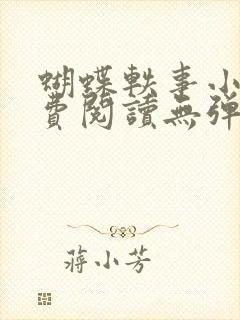 蝴蝶軼事小
費閱讀無彈
蔣小芳